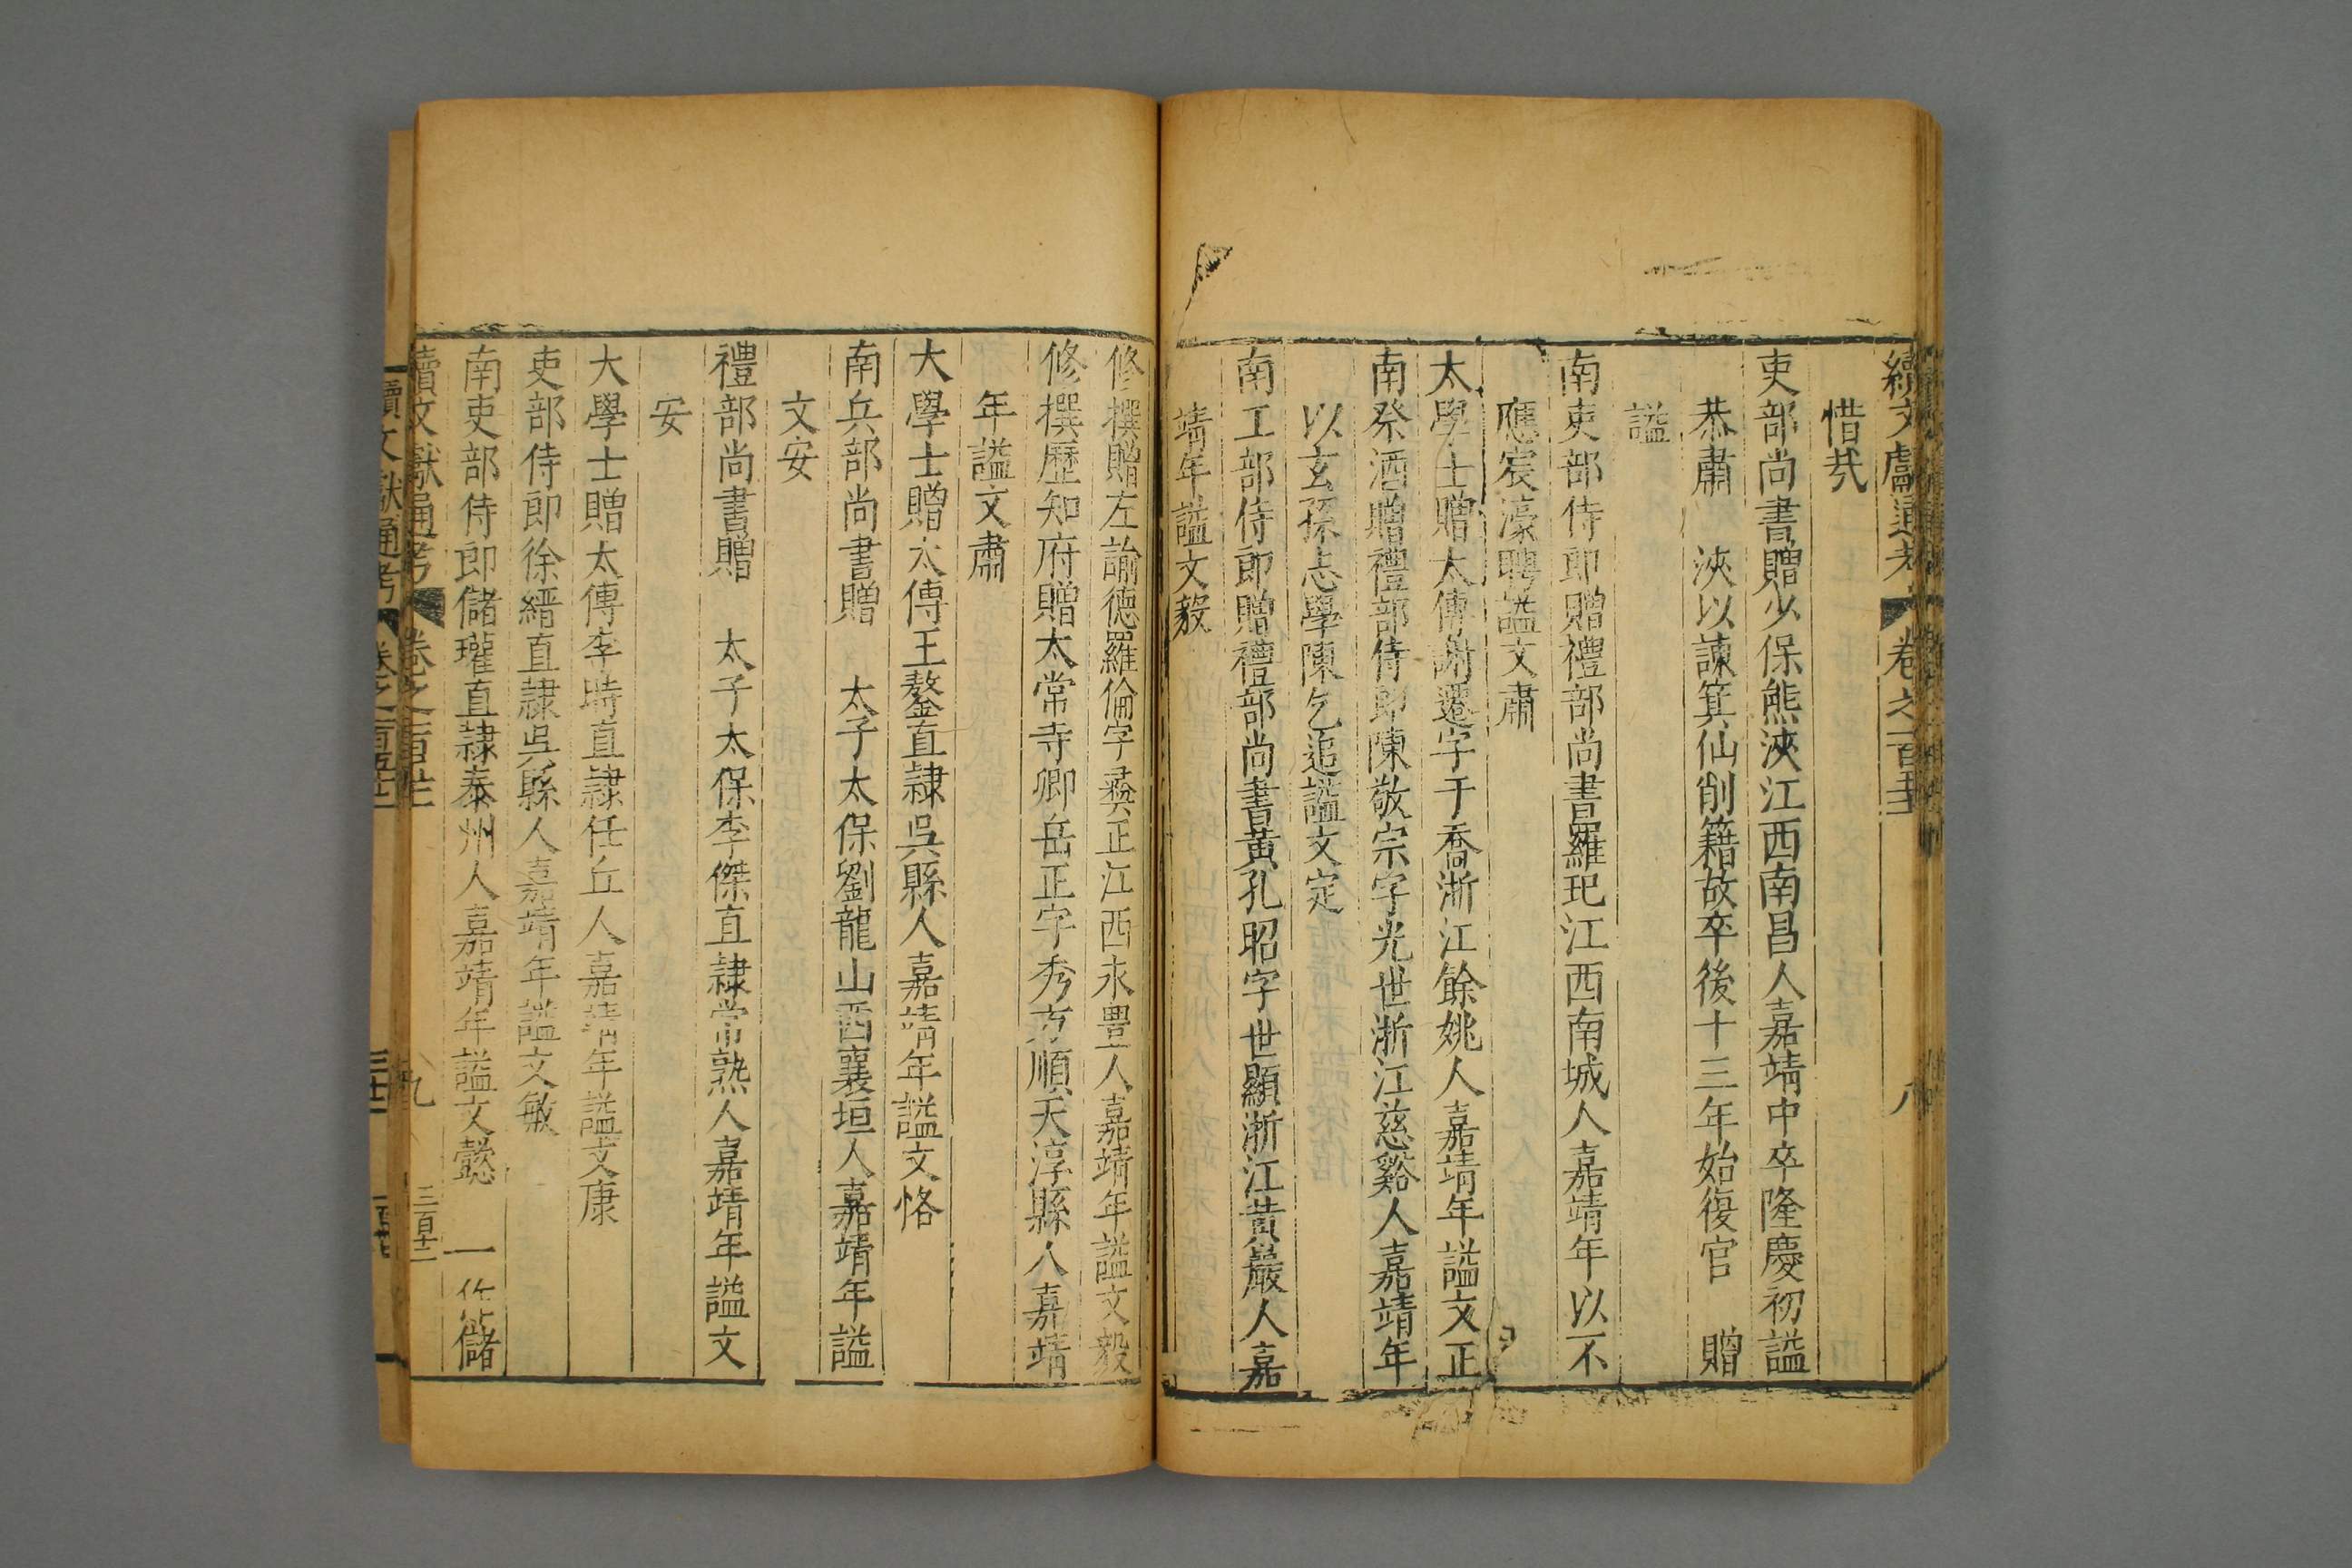 續文獻通考 卷之一百五十 八
惜哉
吏部尚書贈少保熊浹江西南昌人嘉靖中卒隆慶初謚
恭肅 浹以諫箕仙削籍故卒後十三年始復官 贈
謚
南吏部侍郎贈禮部尚書羅玘江西南城人嘉靖年以不
應宸濠聘謚文肅
太學士贈太傅謝遷字于喬浙江餘姚人嘉靖年謚文正
南祭酒贈禮部侍郎陳敬宗字光世浙江慈谿人嘉靖年
以玄孫志學陳乞追謚文定
南工部侍郎贈禮部尚書黃孔昭字世顯浙江黃巖人嘉
靖年謚文毅
修撰贈左諭德羅倫字彝正江西永豊人嘉靖年謚文毅
修撰歷知府贈太常寺卿岳正字秀方順天漷縣人嘉靖
年謚文肅
大學士贈太傅王鏊直隸吳縣人嘉靖年謚文恪
南兵部尚書贈 太子太保劉龍山西襄垣人嘉靖年謚
文安
禮部尚書贈 太子太保李傑直隸常熟人嘉靖年謚文
安
大學士贈太傅李時直隸任丘人嘉靖年謚文康
吏部侍郎徐縉直隸吳縣人嘉靖年謚文敏
南吏部侍郎儲瓘直隸泰州人嘉靖年謚文懿 一作儲
續文獻通考 卷之一百五十 九 三百十二
續文獻通考